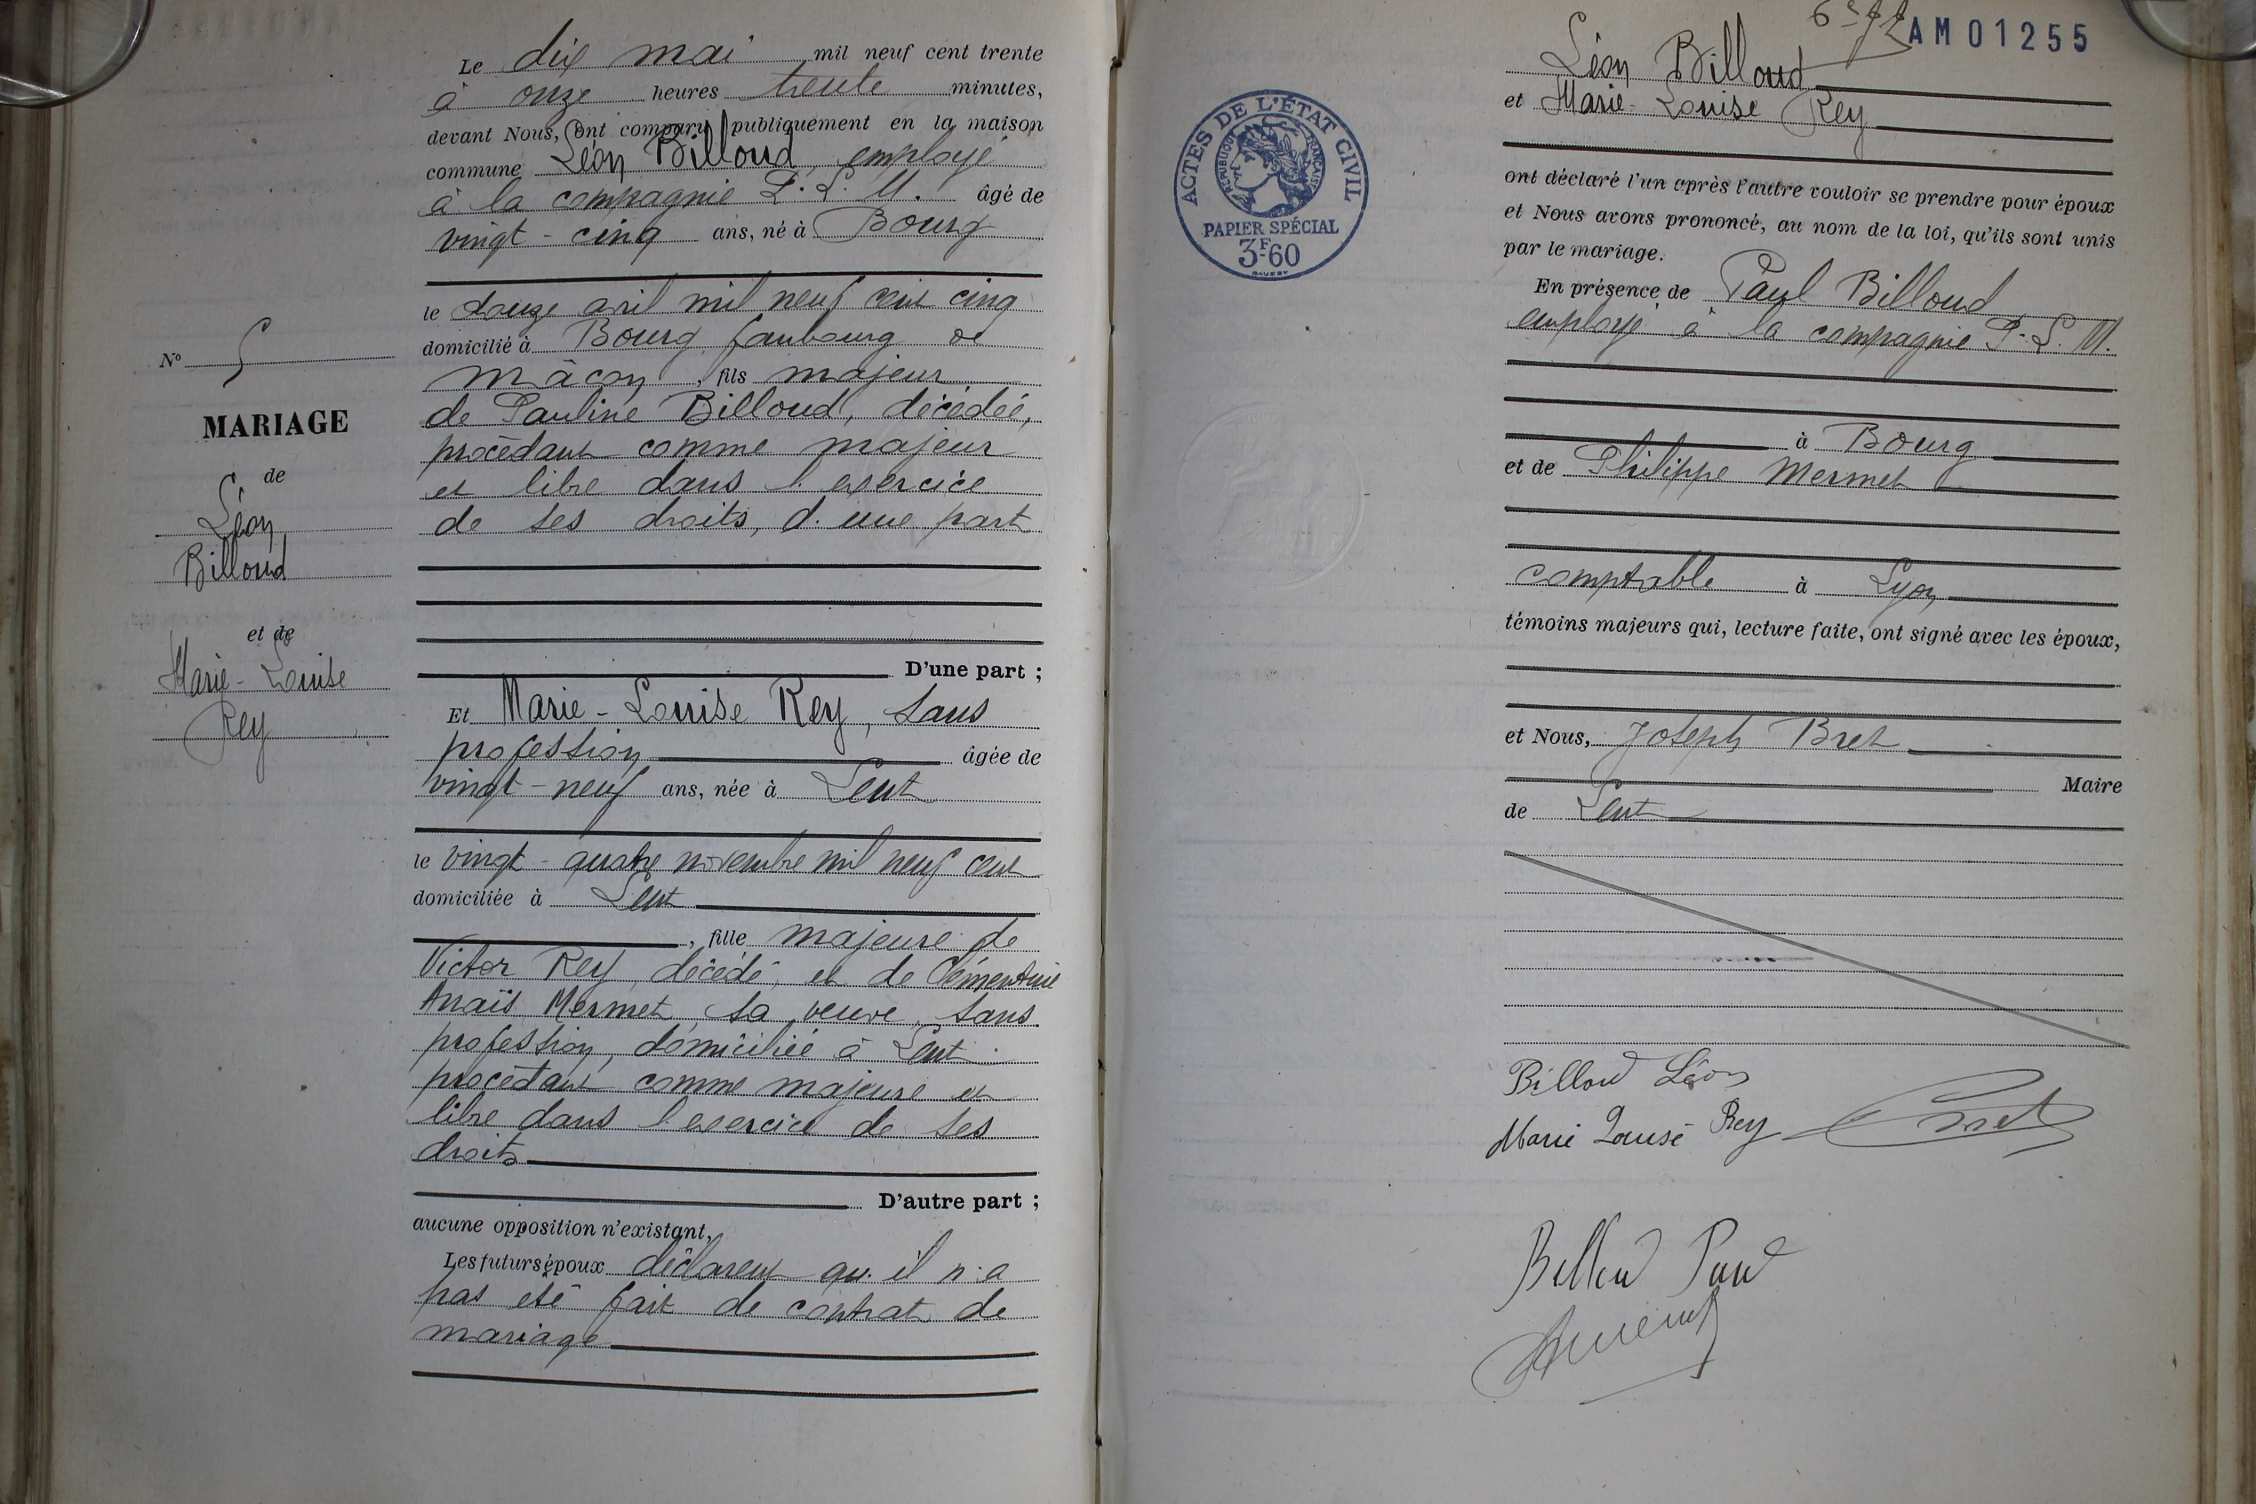 Le dix mai mil neuf cent trente
à onze heures trente minutes,
devant Nous, ont comparu publiquement en la maison
commune Léon Billoud, employé
à la compagnie P. L. M. âgé de
vingt-cinq ans, né à Bourg
le douze avril mil neuf cent cinq
domicilié à Bourg, faubourg de
Mâcon, fils majeur
de Pauline Billoud, décédée,
procédant comme majeur
et libre dans l'exercice
de ses droits, d'une part
D'une part ;
Et Marie-Louise Rey, sans
profession âgée de
vingt-neuf ans, née à Lent
le vingt-quatre novembre mil neuf cent
domiciliée à Lent
, fille majeure de
Victor Rey, décédé, et de Clémentine
Anaïs Mermet, sa veuve, sans
profession, domiciliée à Lent
procédant comme majeure et
libre dans l'exercice de ses
droits
D'autre part ;
aucune opposition n'existant,
Les futurs époux déclarent qu'il n'a
pas été fait de contrat de
mariage
N° 5
MARIAGE
de
Léon
Billoud
et de
Marie-Louise
Rey
AM01255
Léon Billoud
et Marie-Louise Rey
ont déclaré l'un après l'autre vouloir se prendre pour époux
et Nous avons prononcé, au nom de la loi, qu'ils sont unis
par le mariage.
En présence de Paul Billoud
employé à la compagnie P. L. M.
à Bourg
et de Philippe Mermet
comptable à Lyon
témoins majeurs qui, lecture faite, ont signé avec les époux,
et Nous, Joseph Bret
Maire
de Lent
Billoud Léon
Marie Louise Rey
Bret
Billoud Paul
ACTES DE L'ÉTAT CIVIL
RÉPUBLIQUE FRANÇAISE
PAPIER SPÉCIAL
3F.60